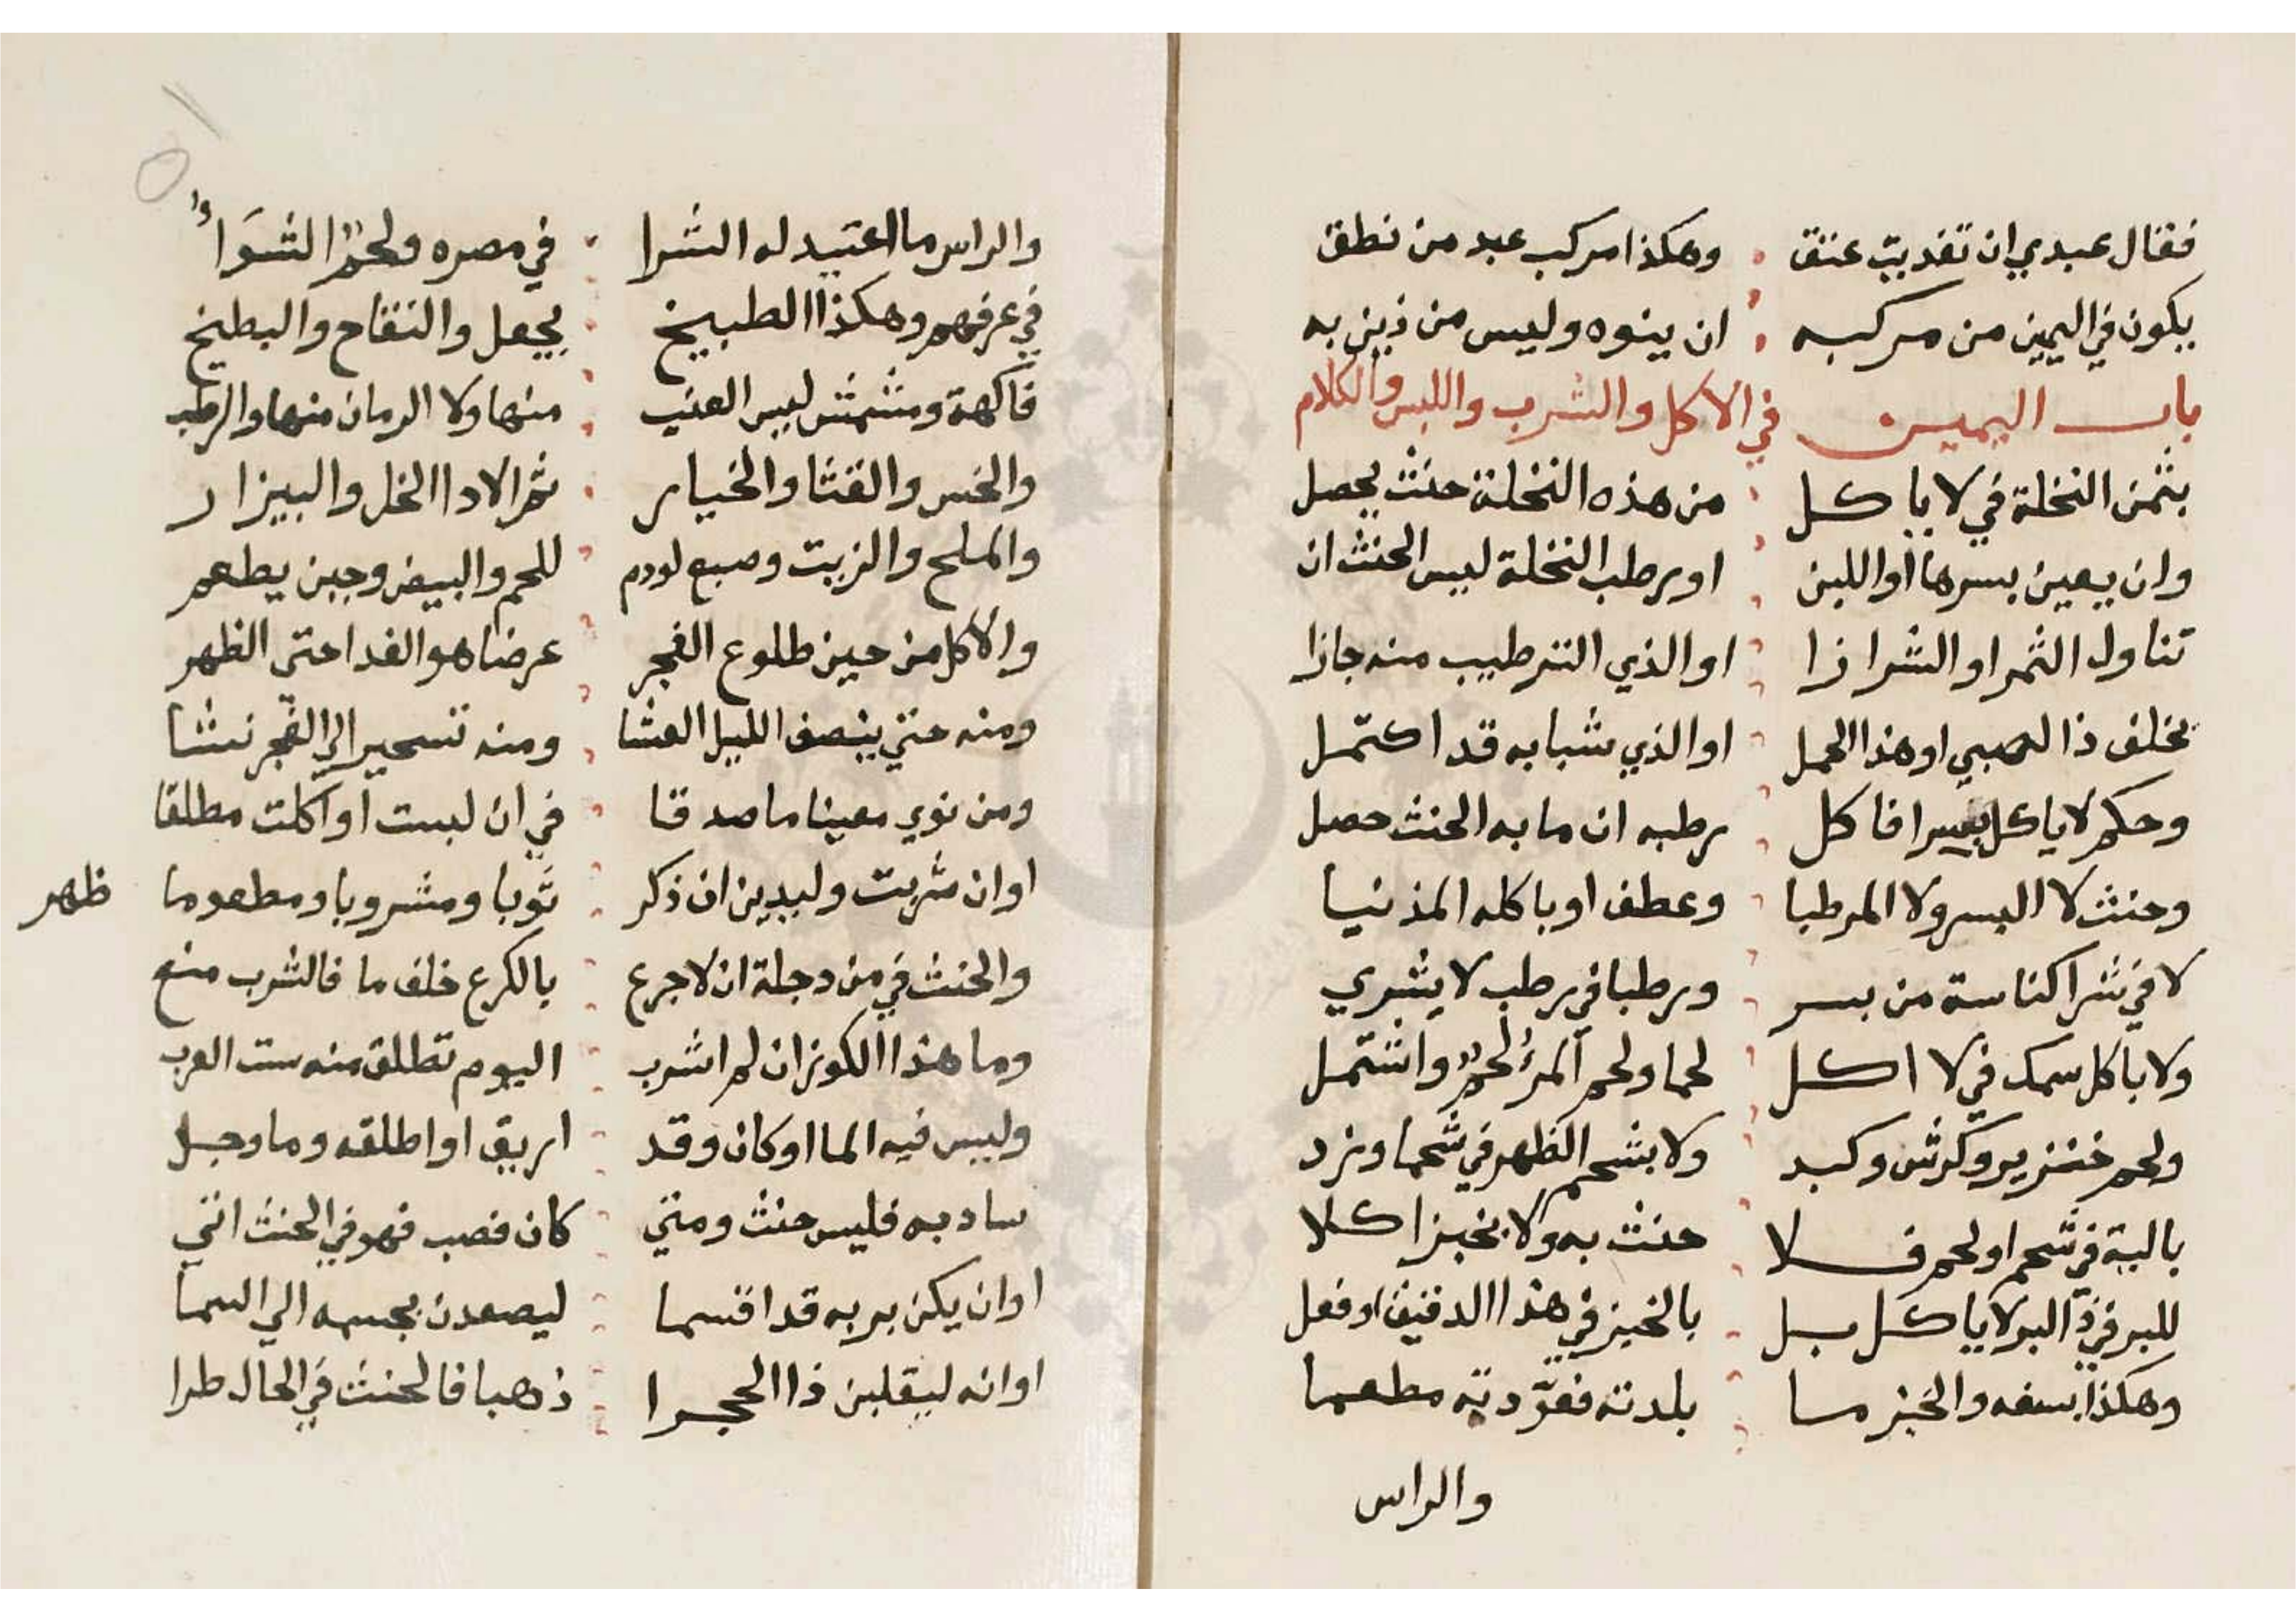 فقال عبدي ان تغديت عتق وهكذا مركب عبد من نطق
يكون في اليمين من مركبه ان ينوه وليس من ذين به
باب اليمين في الاكل والشرب واللبس والكلام
بثمن النخلة في لا ياكل من هذه النخلة حنث يحصل
وان يعين بسرها او اللبن او رطب النخلة ليس الحنث ان
تناول الثمر او الشراز ا او الذي الترطيب منه جازا
بخلف ذا الصبي او هذا الحمل او الذي شبابه قد اكتمل
وحكم لا ياكل بسرا فاكل رطبه ان ما به الحنث حصل
وحنث لا البسر ولا المرطبا وعطف او باكله المذنبا
لا في شرا كناسة من بسر ورطبا في رطب لا يشري
ولا باكل سمك في لا اكل لحما ولحم المرء لحم واشتمل
ولحم خنزير وكرش وكبد ولا بشحم الظهر في شحما وزد
بالية في شحم او لحم فلا حنث به ولا بخبز اكلا
للبر في ذ البر لا ياكل بل بالخبز في هذا الدقيق او فعل
وهكذا بسفه والخبز ما بلدته تعودته مطعما
والراس
والراس ما اعتيد له الشرا في مصره ولحم الشواء
في عرفهم وهكذا الطبيخ يجعل والتفاح والبطيخ
فاكهة ومشمش ليس العنب منها ولا الرمان منها والرطب
والخس والقثا والخيار ثم الادا الخل والبيزار
والملح والزيت وصبع لودم للحم والبيض وجبن يطعم
والاكل من حين طلوع الفجر عرضا هو الغدا حتى الظهر
ومنه حتي ينصف الليل العشا ومنه تسحير الي الفجر نشا
ومن نوي معينا ما صدقا في ان لبست او اكلت مطلقا
او ان شربت وليدين ان ذكر ثوبا ومشروبا ومطعوما ظهر
والحنث في من دجلة ان لا جرع بالكرع خلف ما فالشرب منع
وما هذا الكوز ان لم اشرب اليوم تطلق منه ست العرب
وليس فيه الما او كان وقد اريق او اطلقه وما وجد
ساد به فليس حنث ومتي كان فصب فهو في الحنث اتي
او ان يكن بربه قد اقسما ليصعدن بجسمه الي السما
او انه ليقلبن ذا الحجرا ذهبا فالحنث في الحال طرا